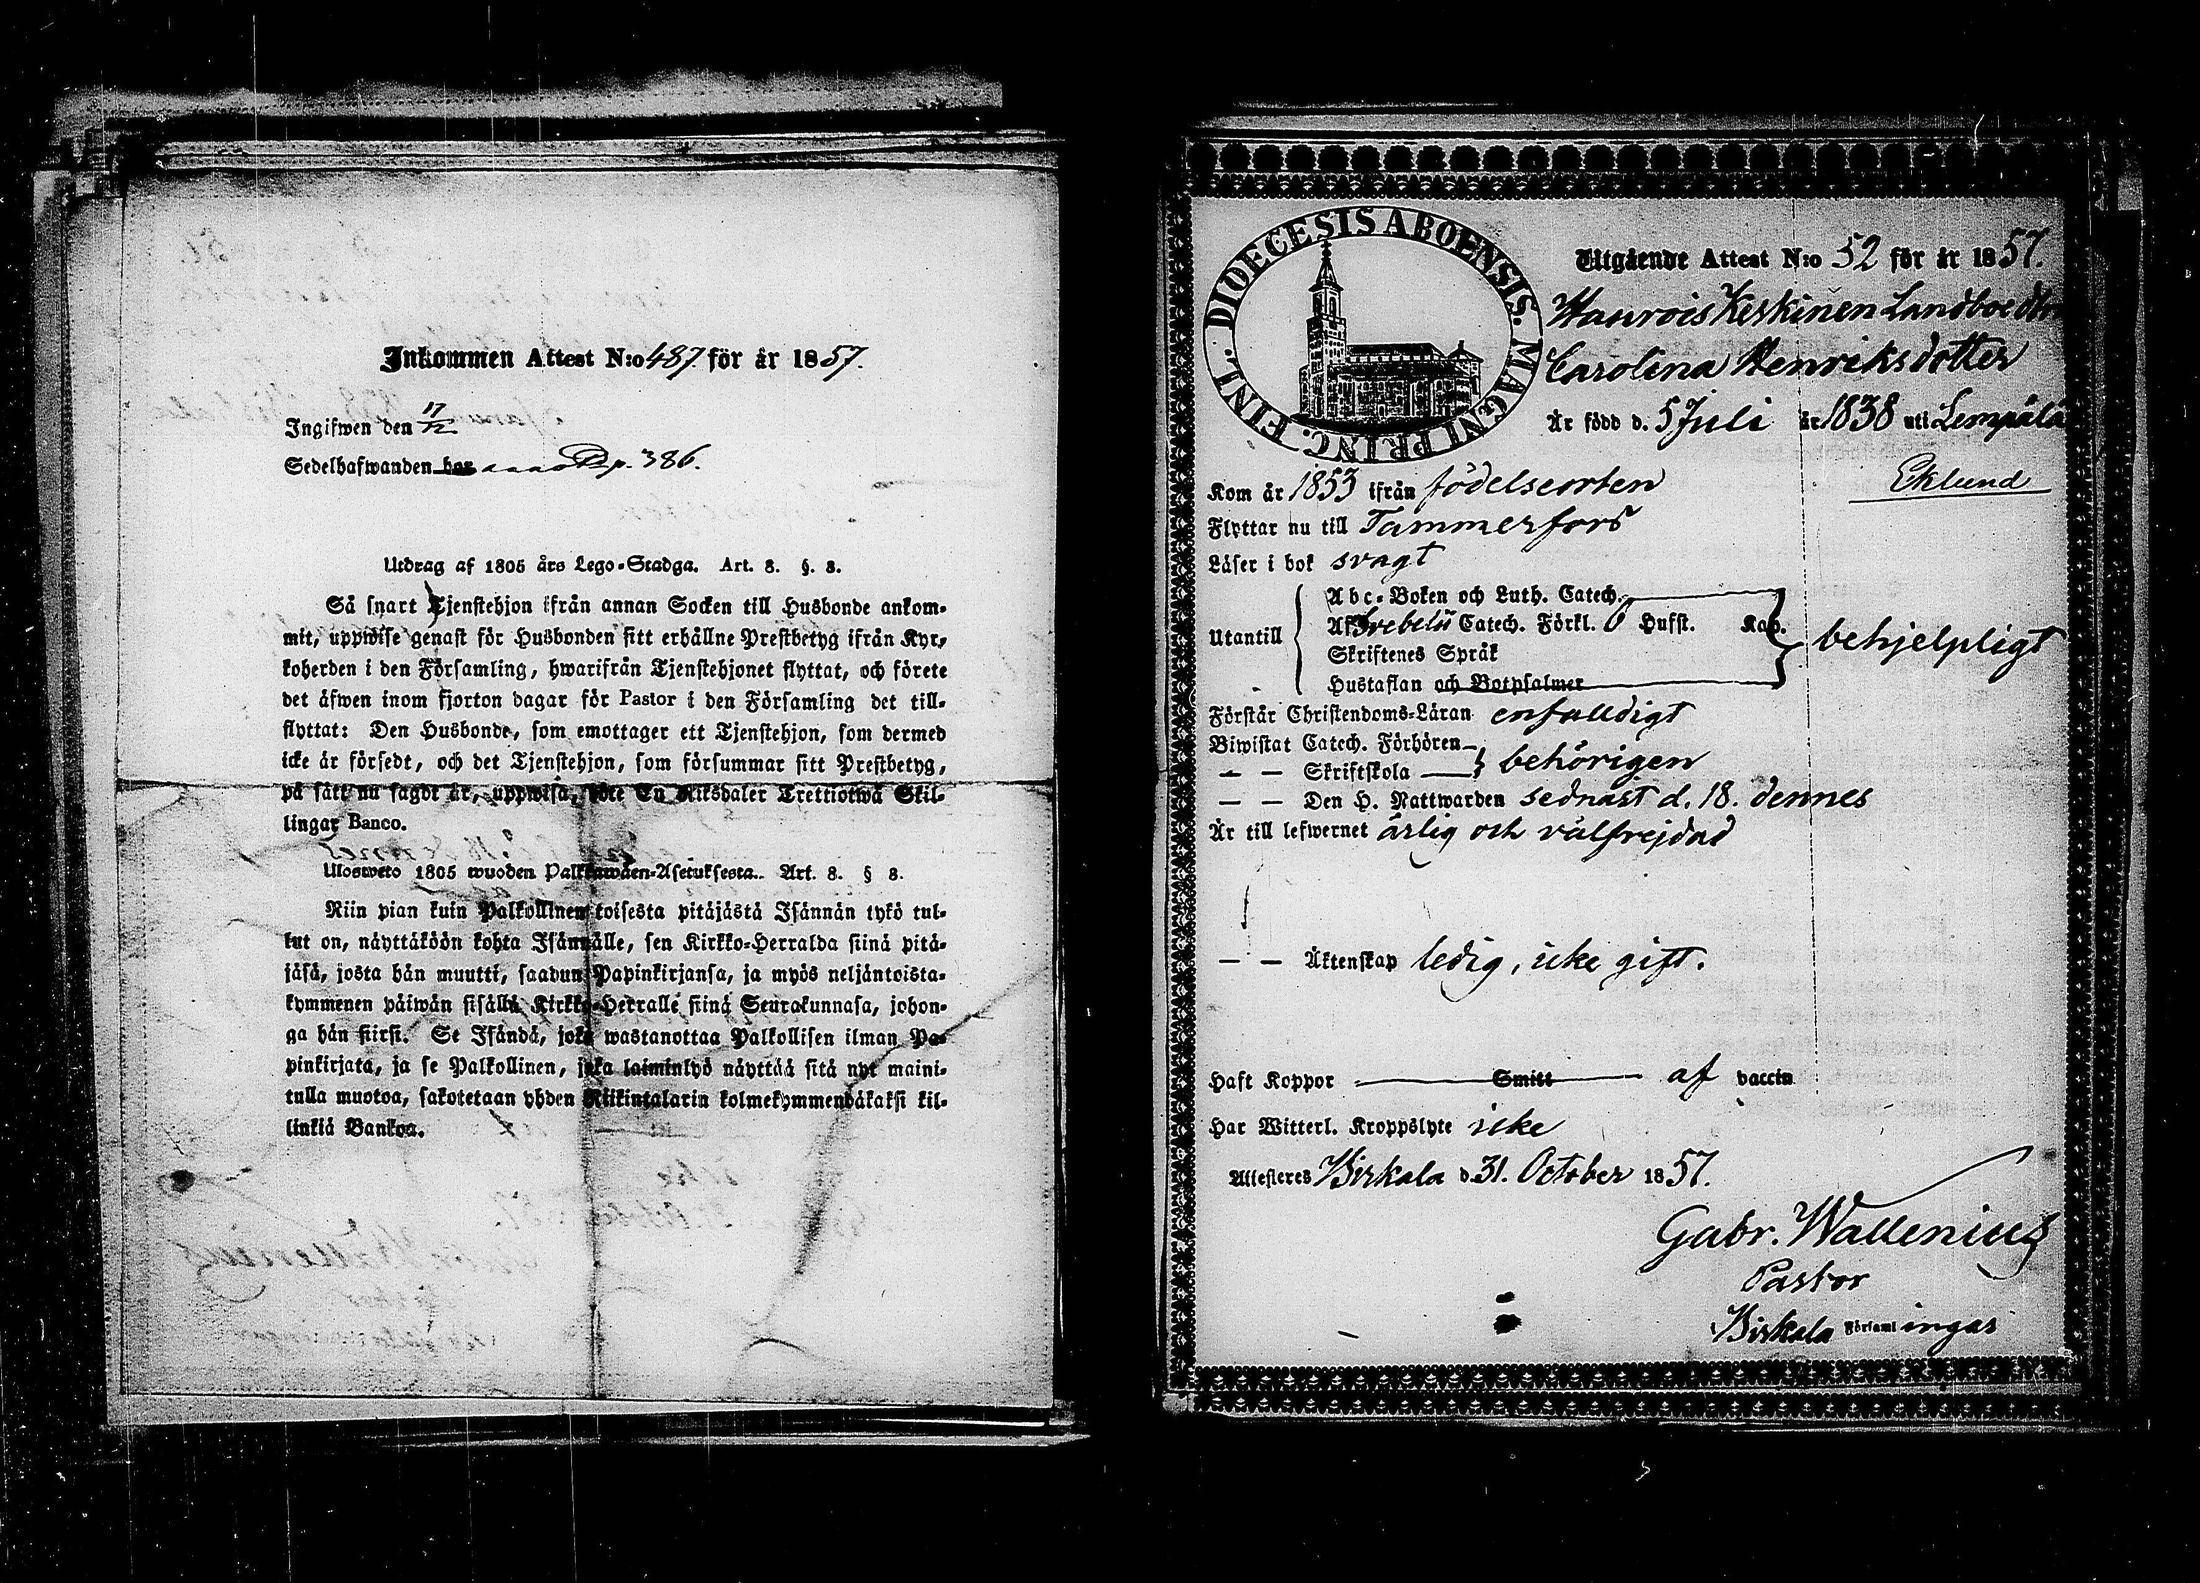 Inkommen Attest N:o 487. för år 1857.
Ingifwen den 17/12
Sedelhafwanden har p. 386.
Utdrag af 1805 års Lego-Stadga. Art. 8. §. 8.
Så snart Tjenstehjon ifrån annan Socken till Husbonde ankom-
mit, uppwise genast för Husbonden sitt erhållne Prestbetyg ifrån Kyr-
koherden i den Församling, hwarifrån Tjenstehjonet flyttat, och förete
det äfwen inom fjorton dagar för Pastor i den Församling det till-
flyttat: Den Husbonde, som emottager ett Tjenstehjon, som dermed
icke är försedt, och det Tjenstehjon, som försummar sitt Prestbetyg,
på sätt nu sagdt är, uppwisa, böte En Riksdaler Trettiotwå Skil-
lingar Banco.
Ulosweto 1805 wuoden Palkkawäen-Asetuksesta. Art. 8. § 8.
Niin pian kuin Palkollinen toisesta pitäjästä Isännän tykö tul-
lut on, näyttäköön kohta Isännälle, sen Kirkko-Herralda siinä pitä-
jäsä, josta hän muutti, saadun Papinkirjansa, ja myös neljäntoista-
kymmenen päiwän sisällä Kirkko-Herralle siinä Seurakunnasa, johon-
ga hän siirsi. Se Isändä, joka wastanottaa Palkollisen ilman Pa-
pinkirjata, ja se Palkollinen, joka laiminlyö näyttää sitä nyt maini-
tulla muotoa, sakotetaan yhden Riikintalarin kolmekymmendäkaksi kil-
linkiä Bankoa.
DIOECESIS ABOENSIS. MAGNI PRINC. FINL.
Utgående Attest N:o 52 för år 1857.
Haurois Keskinen Landboedtr
Carolina Henriksdotter
Är född d. 5 Juli år 1838 uti Lempälä
Eklund
Kom år 1853 ifrån födelseorten
Flyttar nu till Tammerfors
Läser i bok svagt
Utantill
Abc-Boken och Luth. Catech.
Af Svebelii Catech. Förkl. 6 Hufst. Kap.
Skriftenes Språk
Hustaflan och Botpsalmer
behjelpligt
Förstår Christendoms-Läran enfalldigt
Biwistat Catech. Förhören
— — Skriftskola
behörigen
— — Den H. Nattwarden sednast d. 18. dennes
Är till lefwernet ärlig och välfrejdad
— — Äktenskap ledig, icke gift.
Haft Koppor Smitt af vaccin
Har Witterl. Kroppslyte icke
Attesteres Birkala d. 31. October 1857.
Gabr. Wallenius
Pastor
Birkala Församlingas